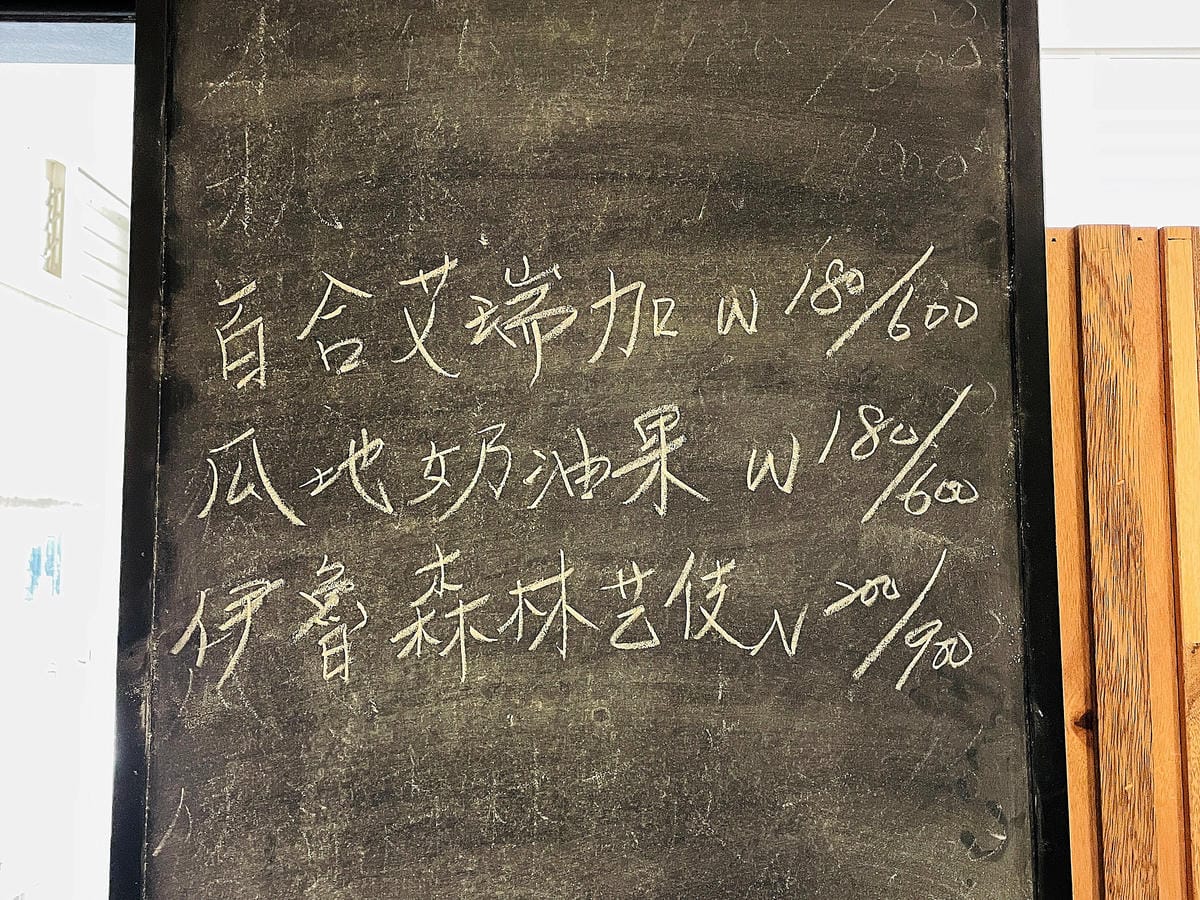 百合艾瑞加 W 180/600
瓜地奶油果 W 180/600
伊鲁森林艺伎 N 200/900